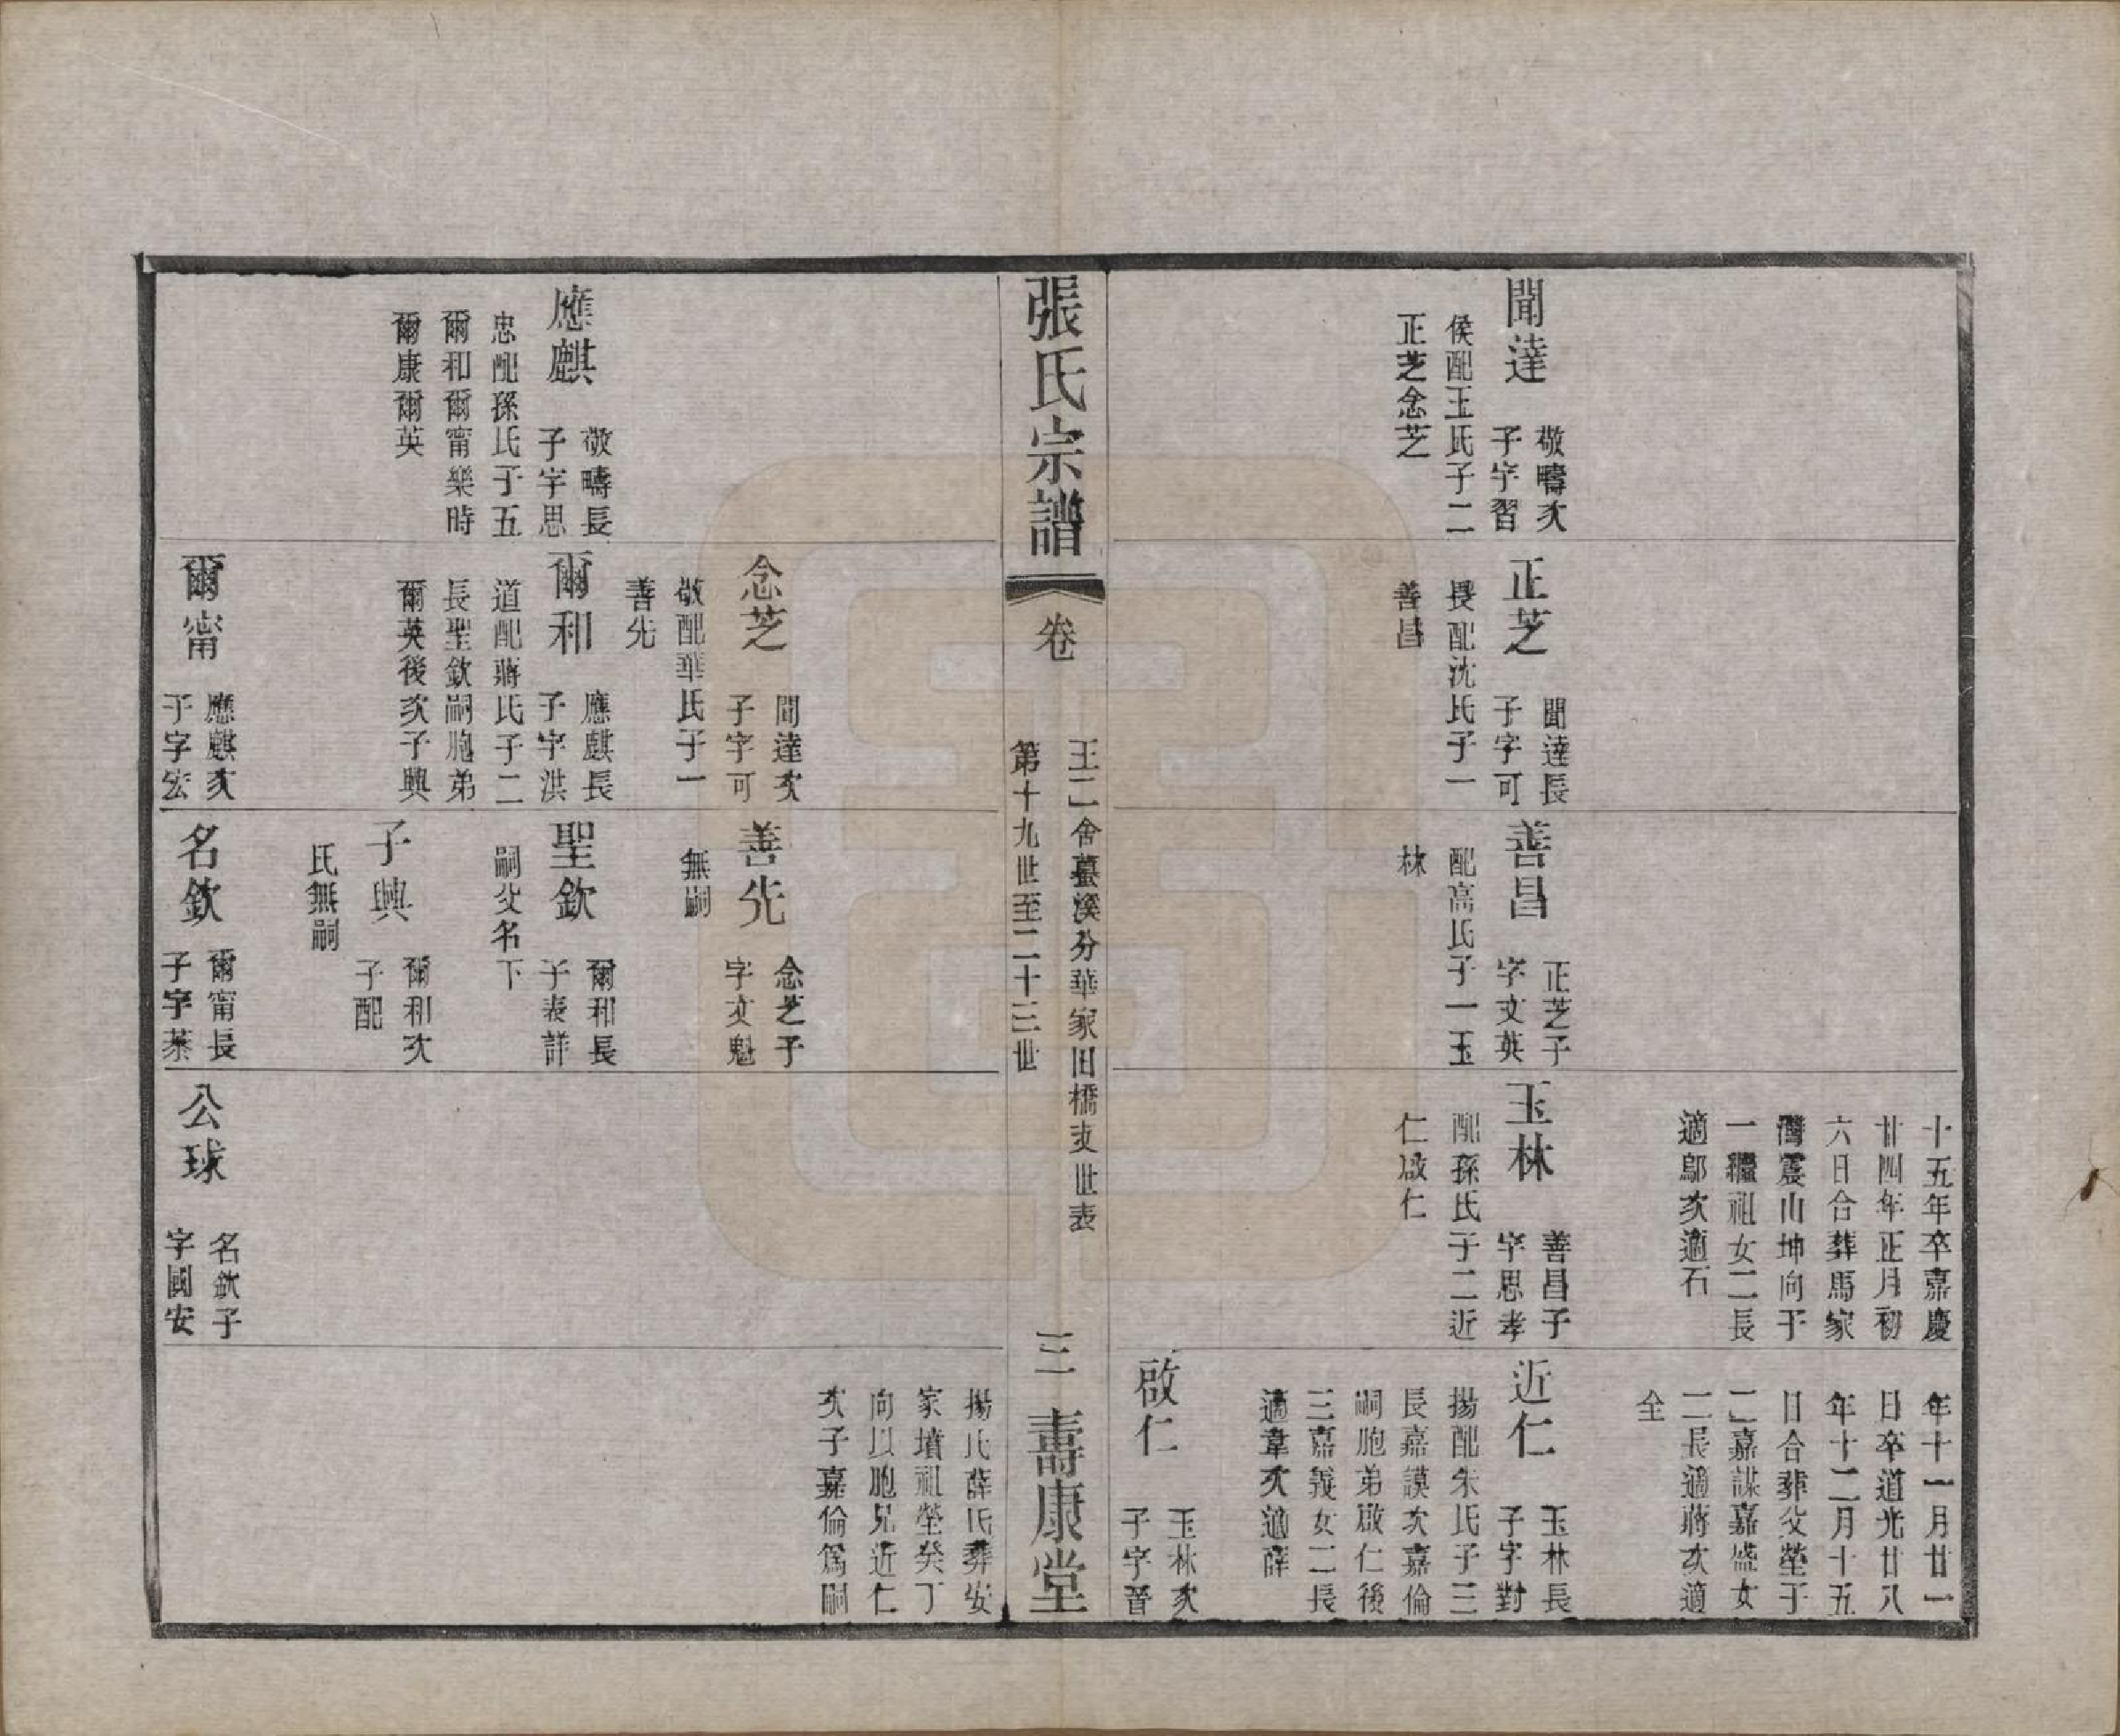 聞達
敬疇次
子字習
侯配王氏子二
正芝念芝
正芝
聞達長
子字可
授配沈氏子一
善昌
善昌
正芝子
字文英
配高氏子一玉
林
十五年卒嘉慶
廿四年正月初
六日合葬馬家
灣震山坤向子
一繼祖女二長
適鄔次適石
玉林
善昌子
字思孝
配孫氏子二近
仁啟仁
年十一月廿一
日卒道光廿八
年十二月十五
日合葬父塋子
二嘉謀嘉盛女
二長適蔣次適
仝
近仁
玉林長
子字對
揚配朱氏子三
長嘉謨次嘉倫
嗣胞弟啟仁後
三嘉義女二長
適韋次適薛
啟仁
玉林次
子字晉
張氏宗譜
卷
王二舍蠆溪分華家旧橋支世表
第十九世至二十三世
三
壽康堂
應麒
敬疇長
子字思
忠配孫氏子五
爾和爾甯樂時
爾康爾英
念芝
聞達次
子字可
敬配華氏子一
善先
爾和
應麒長
子字洪
道配蔣氏子二
長聖欽嗣胞弟
爾英後次子興
爾甯
應麒次
子字宏
善先
念芝子
字文魁
無嗣
聖欽
爾和長
子表詳
嗣父名下
子興
爾和次
子配
氏無嗣
名欽
爾甯長
子字葇
公球
名欽子
字國安
揚氏薛氏葬安
家墳祖塋癸丁
向以胞兄近仁
次子嘉倫爲嗣